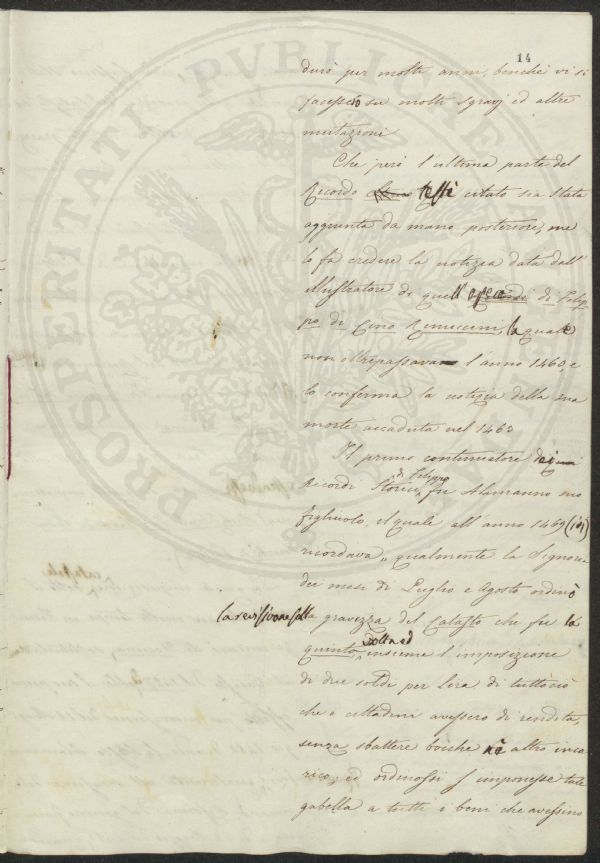 14
durò per molti anni, benchè vi si
facessero su molti sgravj ed altre
mutazioni
Che però l'ultima parte del
Ricordo testè citato sia stata
aggiunta da mano posteriore, me
lo fa credere la notizia data dall'
illustratore di quell'opera di Filip
po di Cino Rinuccini, la quale
non oltrepassava l'anno 1460, e
lo conferma la notizia della sua
morte accaduta nel 1462
Il primo continuatore dei
Ricordi Storici di Filippo fu Alamanno suo
figliuolo, il quale all'anno 1469
ricordava „ qualmente la Signoria
dei mesi di Luglio e Agosto ordinò
la revisione della gravezza del Catasto che fu la
quinta, insieme l'imposizione
di due soldi per Lira di tuttociò
che i cittadini avessero di rendita,
senza sbattere bocche nè altro inca
rico; ed ordinossi s'imponesse tale
gabella a tutti i beni che avessino
PROSPERITATI PVBLICAE